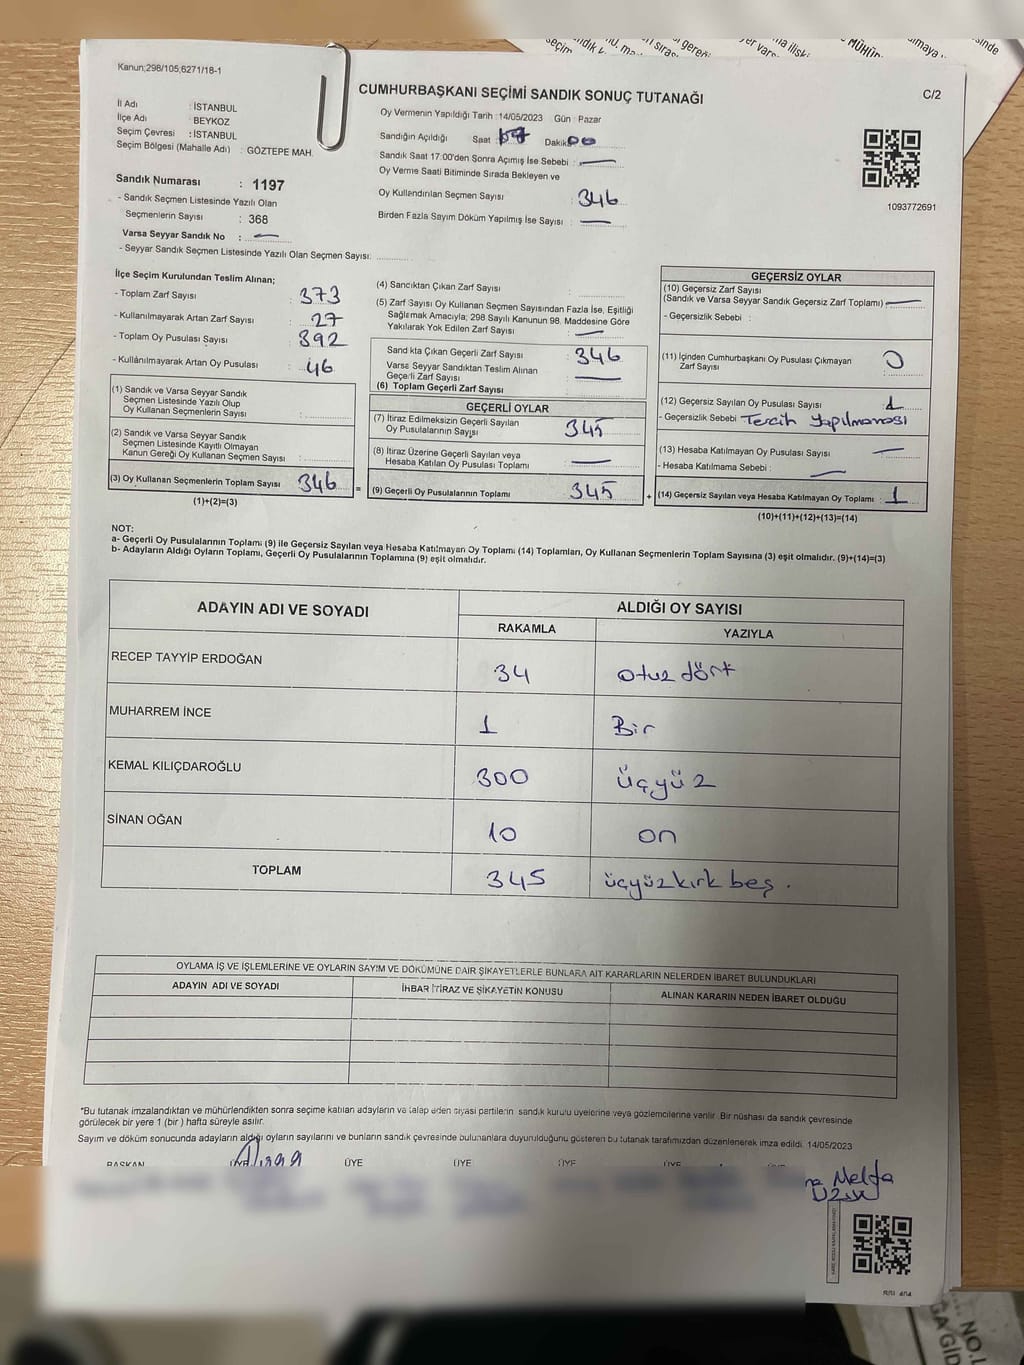 Kanun;298/105,6271/18-1
CUMHURBAŞKANI SEÇİMİ SANDIK SONUÇ TUTANAĞI
C/2
İl Adı : İSTANBUL
İlçe Adı : BEYKOZ
Seçim Çevresi : İSTANBUL
Seçim Bölgesi (Mahalle Adı) : GÖZTEPE MAH.
Sandık Numarası : 1197
- Sandık Seçmen Listesinde Yazılı Olan
Seçmenlerin Sayısı : 368
Varsa Seyyar Sandık No : —
- Seyyar Sandık Seçmen Listesinde Yazılı Olan Seçmen Sayısı:
Oy Vermenin Yapıldığı Tarih : 14/05/2023 Gün : Pazar
Sandığın Açıldığı Saat : Dakika 00
Sandık Saat 17:00'den Sonra Açımış İse Sebebi : —
Oy Verme Saati Bitiminde Sırada Bekleyen ve
Oy Kullandırılan Seçmen Sayısı : 346
Birden Fazla Sayım Döküm Yapılmış İse Sayısı : —
1093772691
İlçe Seçim Kurulundan Teslim Alınan;
- Toplam Zarf Sayısı : 373
- Kullanılmayarak Artan Zarf Sayısı : 27
- Toplam Oy Pusulası Sayısı : 392
- Kullanılmayarak Artan Oy Pusulası : 46
(1) Sandık ve Varsa Seyyar Sandık
Seçmen Listesinde Yazılı Olup
Oy Kullanan Seçmenlerin Sayısı :
(2) Sandık ve Varsa Seyyar Sandık
Seçmen Listesinde Kayıtlı Olmayan
Kanun Gereği Oy Kullanan Seçmen Sayısı :
(3) Oy Kullanan Seçmenlerin Toplam Sayısı : 346
(1)+(2)=(3)
(4) Sandıktan Çıkan Zarf Sayısı :
(5) Zarf Sayısı Oy Kullanan Seçmen Sayısından Fazla İse, Eşitliği
Sağlamak Amacıyla; 298 Sayılı Kanunun 98. Maddesine Göre
Yakılarak Yok Edilen Zarf Sayısı : —
Sandıkta Çıkan Geçerli Zarf Sayısı : 346
Varsa Seyyar Sandıktan Teslim Alınan
Geçerli Zarf Sayısı : —
(6) Toplam Geçerli Zarf Sayısı
GEÇERLİ OYLAR
(7) İtiraz Edilmeksizin Geçerli Sayılan
Oy Pusulalarının Sayısı : 345
(8) İtiraz Üzerine Geçerli Sayılan veya
Hesaba Katılan Oy Pusulası Toplamı : —
= (9) Geçerli Oy Pusulalarının Toplamı : 345
GEÇERSİZ OYLAR
(10) Geçersiz Zarf Sayısı
(Sandık ve Varsa Seyyar Sandık Geçersiz Zarf Toplamı) —
- Geçersizlik Sebebi :
(11) İçinden Cumhurbaşkanı Oy Pusulası Çıkmayan
Zarf Sayısı : 0
(12) Geçersiz Sayılan Oy Pusulası Sayısı : 1
- Geçersizlik Sebebi Tercih Yapılmaması
(13) Hesaba Katılmayan Oy Pusulası Sayısı : —
- Hesaba Katılmama Sebebi : —
+ (14) Geçersiz Sayılan veya Hesaba Katılmayan Oy Toplamı : 1
(10)+(11)+(12)+(13)=(14)
NOT:
a- Geçerli Oy Pusulalarının Toplamı (9) ile Geçersiz Sayılan veya Hesaba Katılmayan Oy Toplamı (14) Toplamları, Oy Kullanan Seçmenlerin Toplam Sayısına (3) eşit olmalıdır. (9)+(14)=(3)
b- Adayların Aldığı Oyların Toplamı, Geçerli Oy Pusulalarının Toplamına (9) eşit olmalıdır.
ADAYIN ADI VE SOYADI ALDIĞI OY SAYISI
RAKAMLA YAZIYLA
RECEP TAYYİP ERDOĞAN 34 otuz dört
MUHARREM İNCE 1 Bir
KEMAL KILIÇDAROĞLU 300 üçyüz
SİNAN OĞAN 10 on
TOPLAM 345 üçyüzkırk beş .
OYLAMA İŞ VE İŞLEMLERİNE VE OYLARIN SAYIM VE DÖKÜMÜNE DAİR ŞİKAYETLERLE BUNLARA AİT KARARLARIN NELERDEN İBARET BULUNDUKLARI
ADAYIN ADI VE SOYADI İHBAR İTİRAZ VE ŞİKAYETİN KONUSU ALINAN KARARIN NEDEN İBARET OLDUĞU
*Bu tutanak imzalandıktan ve mühürlendikten sonra seçime katılan adayların ve talep eden siyasi partilerin sandık kurulu üyelerine veya gözlemcilerine verilir. Bir nüshası da sandık çevresinde
görülecek bir yere 1 (bir) hafta süreyle asılır.
Sayım ve döküm sonucunda adayların aldığı oyların sayılarını ve bunların sandık çevresinde bulunanlara duyurulduğunu gösteren bu tutanak tarafımızdan düzenlenerek imza edildi. 14/05/2023
BAŞKAN ÜYE ÜYE ÜYE ÜYE ÜYE
Melfa